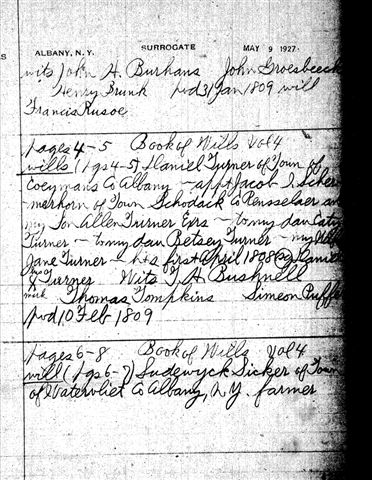 ALBANY, N.Y. SURROGATE MAY 9 1927.
wits John H. Burhans John Groesbeeck
Henry Brunk pvd 31 Jan 1809 will
Francis Rusoe
pages 4-5 Book of Wills Vol 4
wills (pgs 4-5) Daniel Turner of Town of
Coeymans Co Albany - appt Jacob I. Scher-
merhorn of Town Schodack Co Rensselaer and
my Son Allen Turner Exrs - to my dau Caty
Turner - to my dau Betsey Turner - my
Jane Turner - dts first April 1808 Daniel
Turner Wits T. H. Bushnell
mark Thomas Tompkins Simeon
pvd 10 Feb 1809
pages 6-8 Book of Wills Vol 4
will (pgs 6-7) Ludewyck Sicker of Town
of Watervliet Co Albany, N.Y. farmer